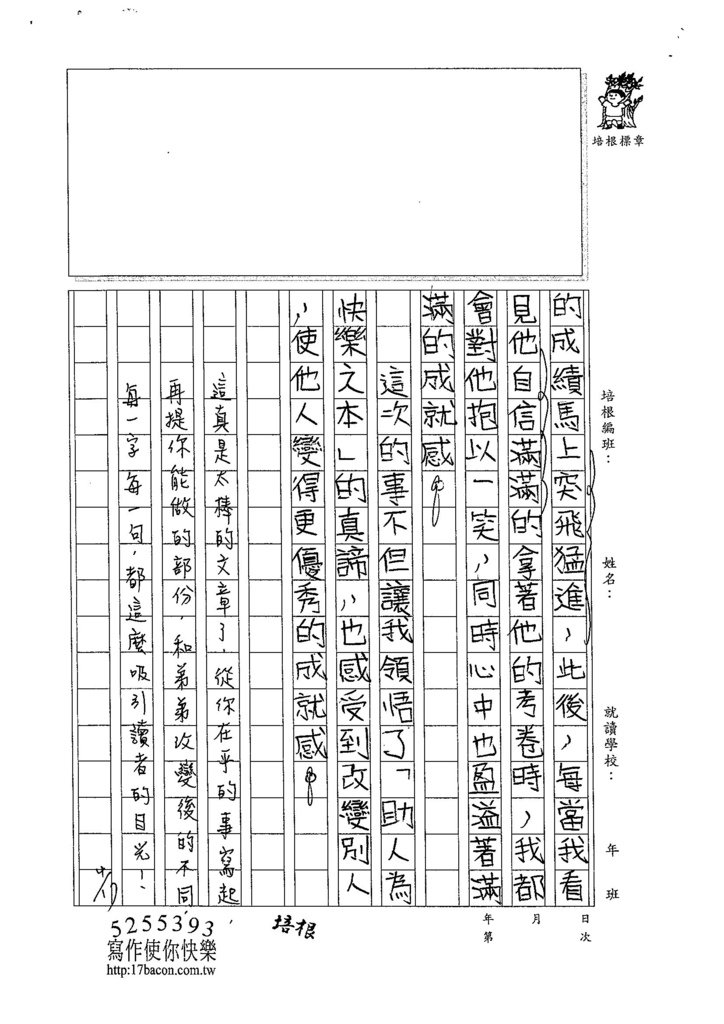 培根標章
培根編班：　姓名：　就讀學校：　年　班
日　月　年
次　第
的成績馬上突飛猛進，此後，每當我看
見他自信滿滿的拿著他的考卷時，我都
會對他抱以一笑，同時心中也盈溢著滿
滿的成就感。
這次的事不但讓我領悟了「助人為
快樂之本」的真諦，也感受到改變別人
，使他人變得更優秀的成就感。
這真是太棒的文章了，從你在乎的事寫起，
再提你能做的部份，和弟弟改變後的不同，
每一字每一句，都這麼吸引讀者的目光！
培根
5255393
寫作使你快樂
http:17bacon.com.tw